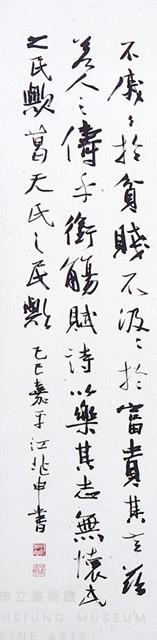 不慼々於貧賤不汲々於富貴其言茲
若人之儔乎銜觴賦詩以樂其志無懷氏
之民歟葛天氏之民歟 乙巳嘉平江兆申書
市立美術館
HSIUNG MUSEUM
FINE ARTS